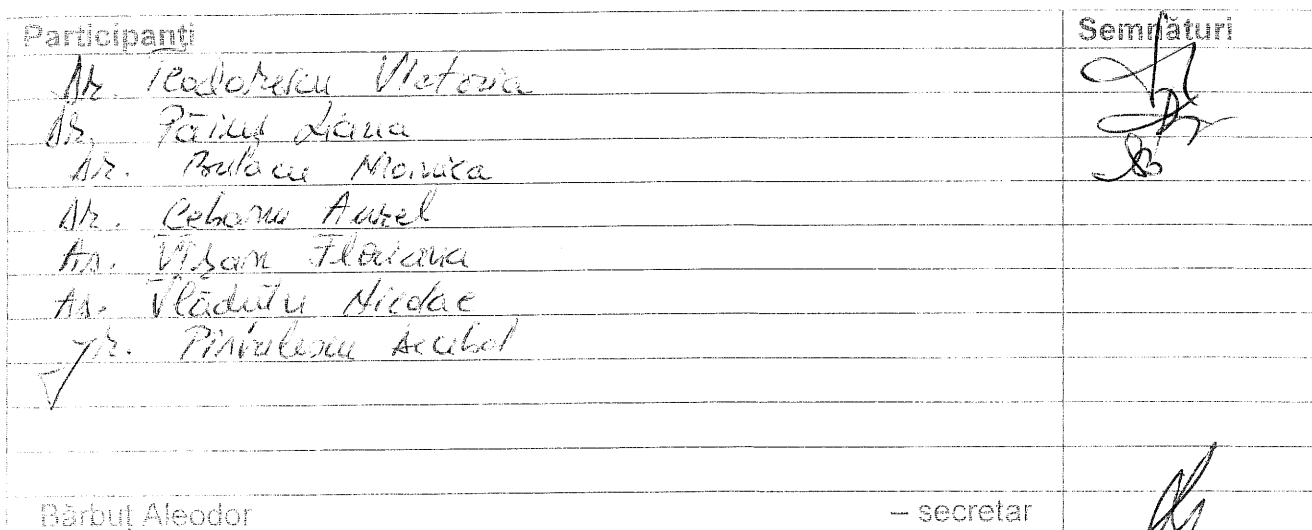 Participanți Semnături
Dr. Teodorescu Victoria
Dr. Păiuș Liana
Dr. Bulacu Monica
Dr. Cebanu Aurel
As. Vișan Floriana
As. Vlăduțu Nicolae
Jr. Pîrvulescu Decebal
Bărbuț Aleodor – secretar